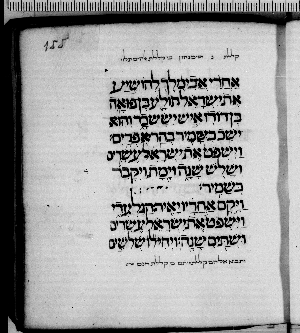 155
אחרי אבימלך להושיע
את ישראל תולע בן פואה
בן דודו איש יששכר והוא
ישב בשמיר בהר אפרים
וישפט את ישראל עשרים
ושלש שנה וימת ויקבר
בשמיר
ויקם אחריו יאיר הגלעדי
וישפט את ישראל עשרים
ושתים שנה ויהי לו שלשים